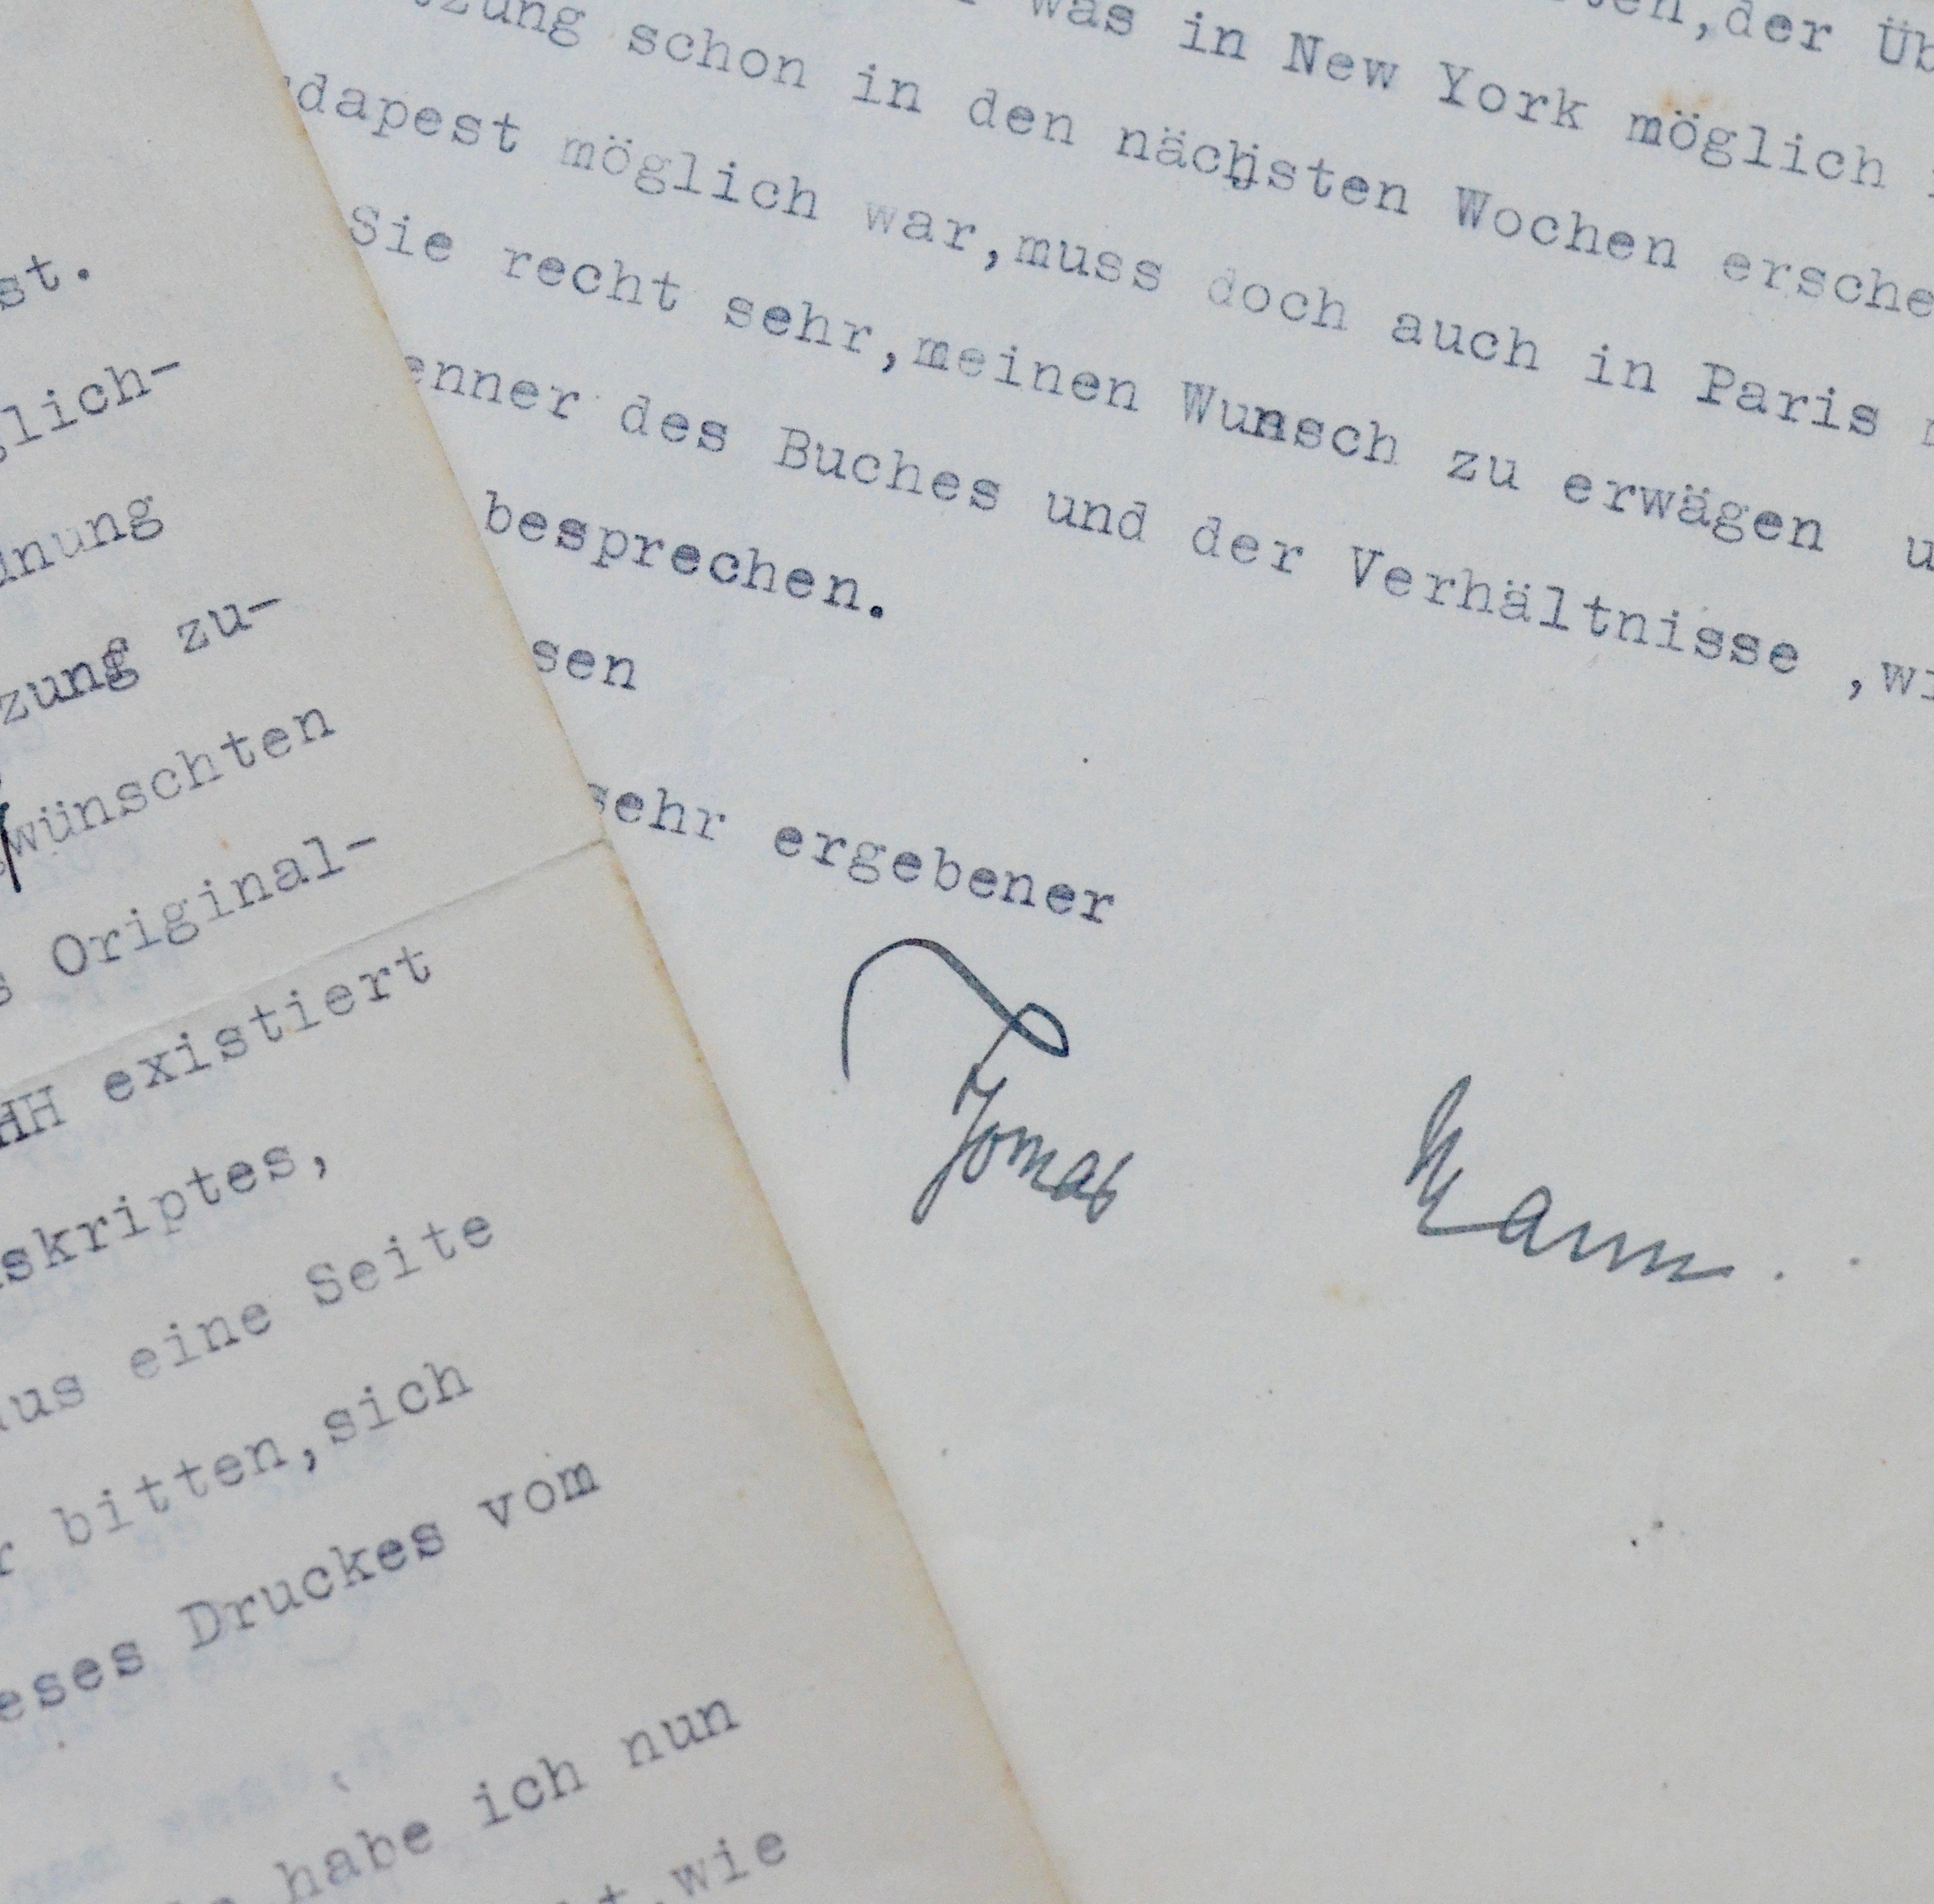 st.
glich-
inung
zung zu-
wünschten
s Original-
HH existiert
skriptes,
aus eine Seite
r bitten,sich
eses Druckes vom
habe ich nun
t,wie
ten,der Üb
was in New York möglich
tzung schon in den nächsten Wochen ersche
dapest möglich war,muss doch auch in Paris
Sie recht sehr,meinen Wunsch zu erwägen u
enner des Buches und der Verhältnisse ,wi
besprechen.
sen
sehr ergebener
Thomas Mann.